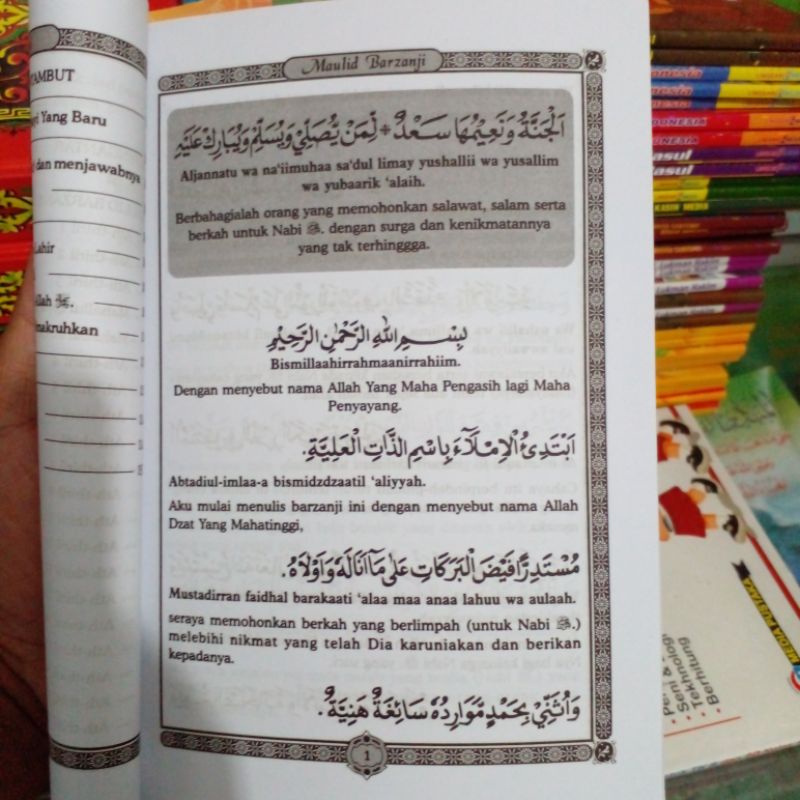 AMBUT
yi Yang Baru
dan menjawabnya
Lahir
Allah ﷺ.
makruhkan
Maulid Barzanji
اَلْجَنَّةُ وَنَعِيْمُهَا سَعْدٌ * لِمَنْ يُّصَلِّيْ وَيُسَلِّمْ وَيُبَارِكْ عَلَيْهِ
Aljannatu wa na‘iimuhaa sa‘dul limay yushallii wa yusallim
wa yubaarik ‘alaih.
Berbahagialah orang yang memohonkan salawat, salam serta
berkah untuk Nabi ﷺ. dengan surga dan kenikmatannya
yang tak terhinggga.
بِسْمِ اللهِ الرَّحْمٰنِ الرَّحِيْمِ
Bismillaahirrahmaanirrahiim.
Dengan menyebut nama Allah Yang Maha Pengasih lagi Maha
Penyayang.
اَبْتَدِئُ الْاِمْلَآءَ بِاسْمِ الذَّاتِ الْعَلِيَّةِ.
Abtadiul-imlaa-a bismidzdzaatil ‘aliyyah.
Aku mulai menulis barzanji ini dengan menyebut nama Allah
Dzat Yang Mahatinggi,
مُسْتَدِرًّا فَيْضَ الْبَرَكَاتِ عَلٰى مَآ اَنَالَهُ وَاَوْلَاهُ.
Mustadirran faidhal barakaati ‘alaa maa anaa lahuu wa aulaah.
seraya memohonkan berkah yang berlimpah (untuk Nabi ﷺ.)
melebihi nikmat yang telah Dia karuniakan dan berikan
kepadanya.
وَاُثَنِّيْ بِحَمْدٍ مَّوَارِدُهُ سَائِغَةٌ هَنِيَّةٌ.
1
onesia
INDONESIA
ONESIA
asul
asul
MEDIA PUSTAKA
Seni &
Teknologi
Berhitung